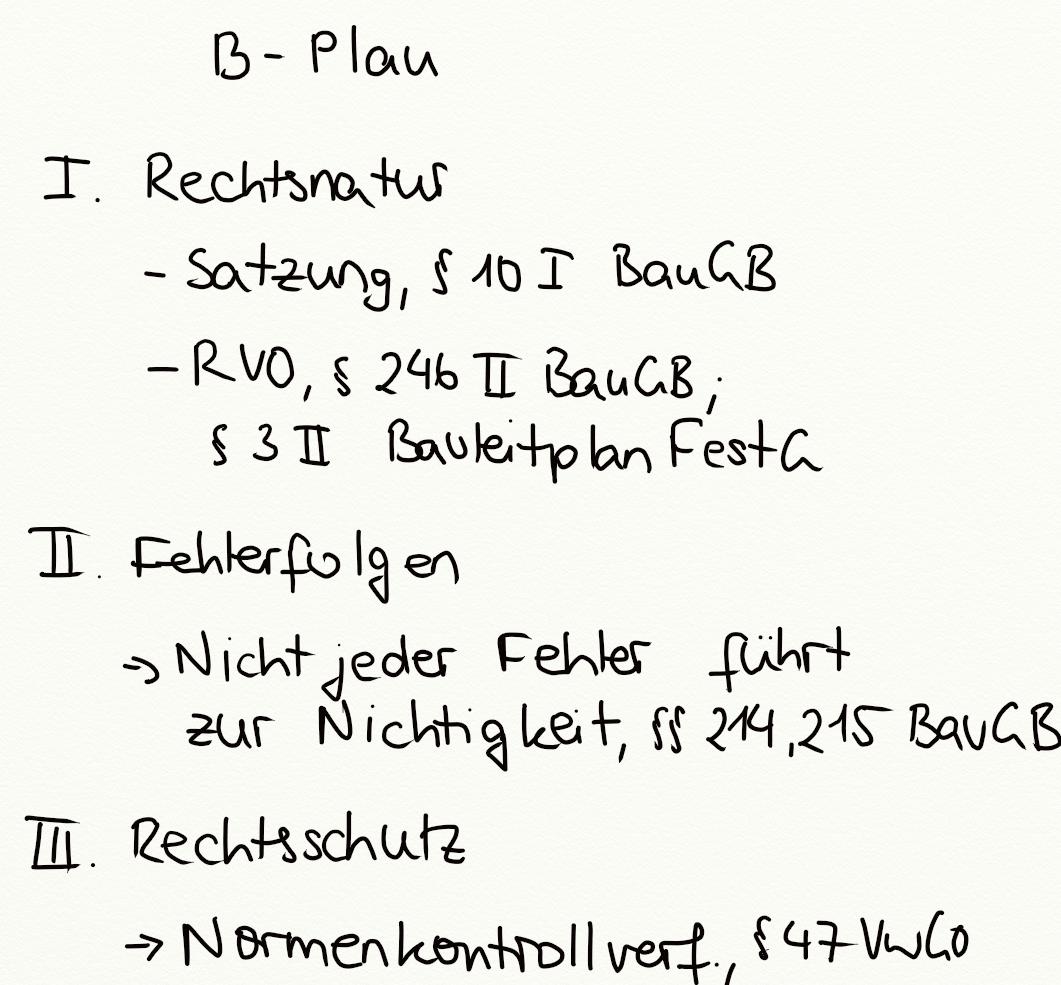 B-Plan
I. Rechtsnatur
- Satzung, § 10 I BauGB
- RVO, § 246 II BauGB;
§ 3 II BauleitplanFestG
II. Fehlerfolgen
→ Nicht jeder Fehler führt
zur Nichtigkeit, §§ 214, 215 BauGB
III. Rechtsschutz
→ Normenkontrollverf., § 47 VwGO